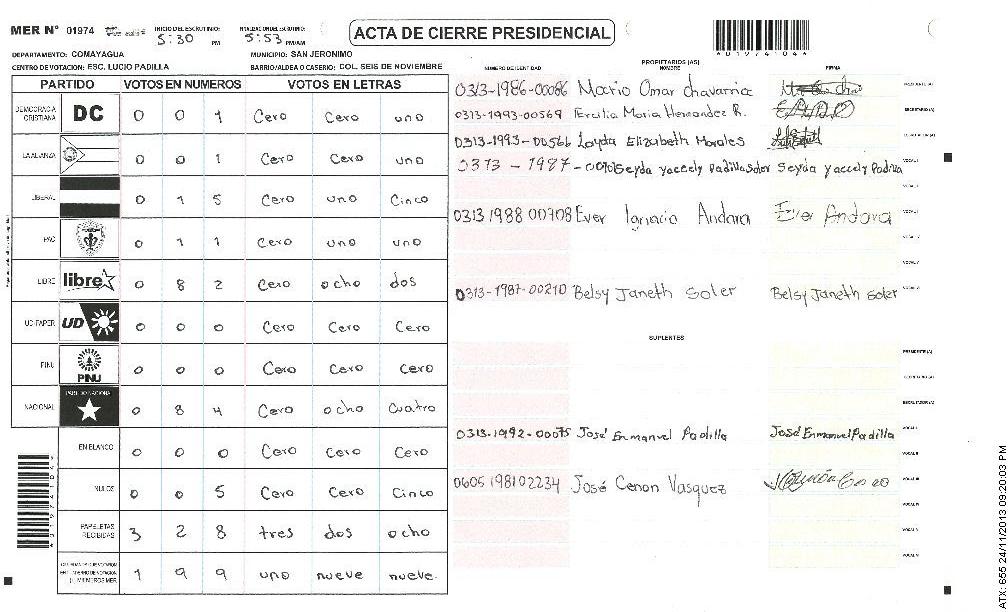 MER Nº 01974
INICIO DEL ESCRUTINIO:
5:30 PM
FINALIZACION DEL ESCRUTINIO:
5:53 PM/AM
ACTA DE CIERRE PRESIDENCIAL
DEPARTAMENTO: COMAYAGUA
MUNICIPIO: SAN JERONIMO
CENTRO DE VOTACION: ESC. LUCIO PADILLA
BARRIO/ALDEA O CASERIO: COL. SEIS DE NOVIEMBRE
PARTIDO VOTOS EN NUMEROS VOTOS EN LETRAS
DEMOCRACIA CRISTIANA DC 0 0 1 Cero Cero uno
LA ALIANZA 0 0 1 Cero Cero uno
LIBERAL 0 1 5 Cero uno Cinco
PAC 0 1 1 Cero uno uno
LIBRE libre 0 8 2 Cero ocho dos
UD-FAPER UD 0 0 0 Cero Cero Cero
PINU PINU 0 0 0 Cero Cero Cero
NACIONAL PARTIDO NACIONAL 0 8 4 Cero ocho Cuatro
EN BLANCO 0 0 0 Cero Cero Cero
NULOS 0 0 5 Cero Cero Cinco
PAPELETAS RECIBIDAS 3 2 8 tres dos ocho
1 9 9 uno nueve nueve
PROPIETARIOS (AS)
NUMERO DE IDENTIDAD NOMBRE FIRMA
0313-1986-00086 Mario Omar Chavarria PRESIDENTE (A)
0313-1993-00569 Ercilia Maria Hernandez R. SECRETARIO (A)
0313-1993-00566 Loyda Elizabeth Morales ESCRUTADOR (A)
0313-1987- Seyda yaccely Padilla Soler Seyda yaccely Padilla VOCAL I
0313 1988 00708 Ever Ignacio Andara Ever Andara
0313-1987-00210 Belsy Janeth Soler Belsy Janeth Soler
SUPLENTES
PRESIDENTE (A)
SECRETARIO (A)
ESCRUTADOR (A)
0313-1992-00075 José Enmanuel Padilla José Enmanuel Padilla VOCAL I
VOCAL II
0605 198102234 José Cenon Vasquez VOCAL III
VOCAL IV
VOCAL V
ATX: 655 24/11/2013 09:20:03 PM